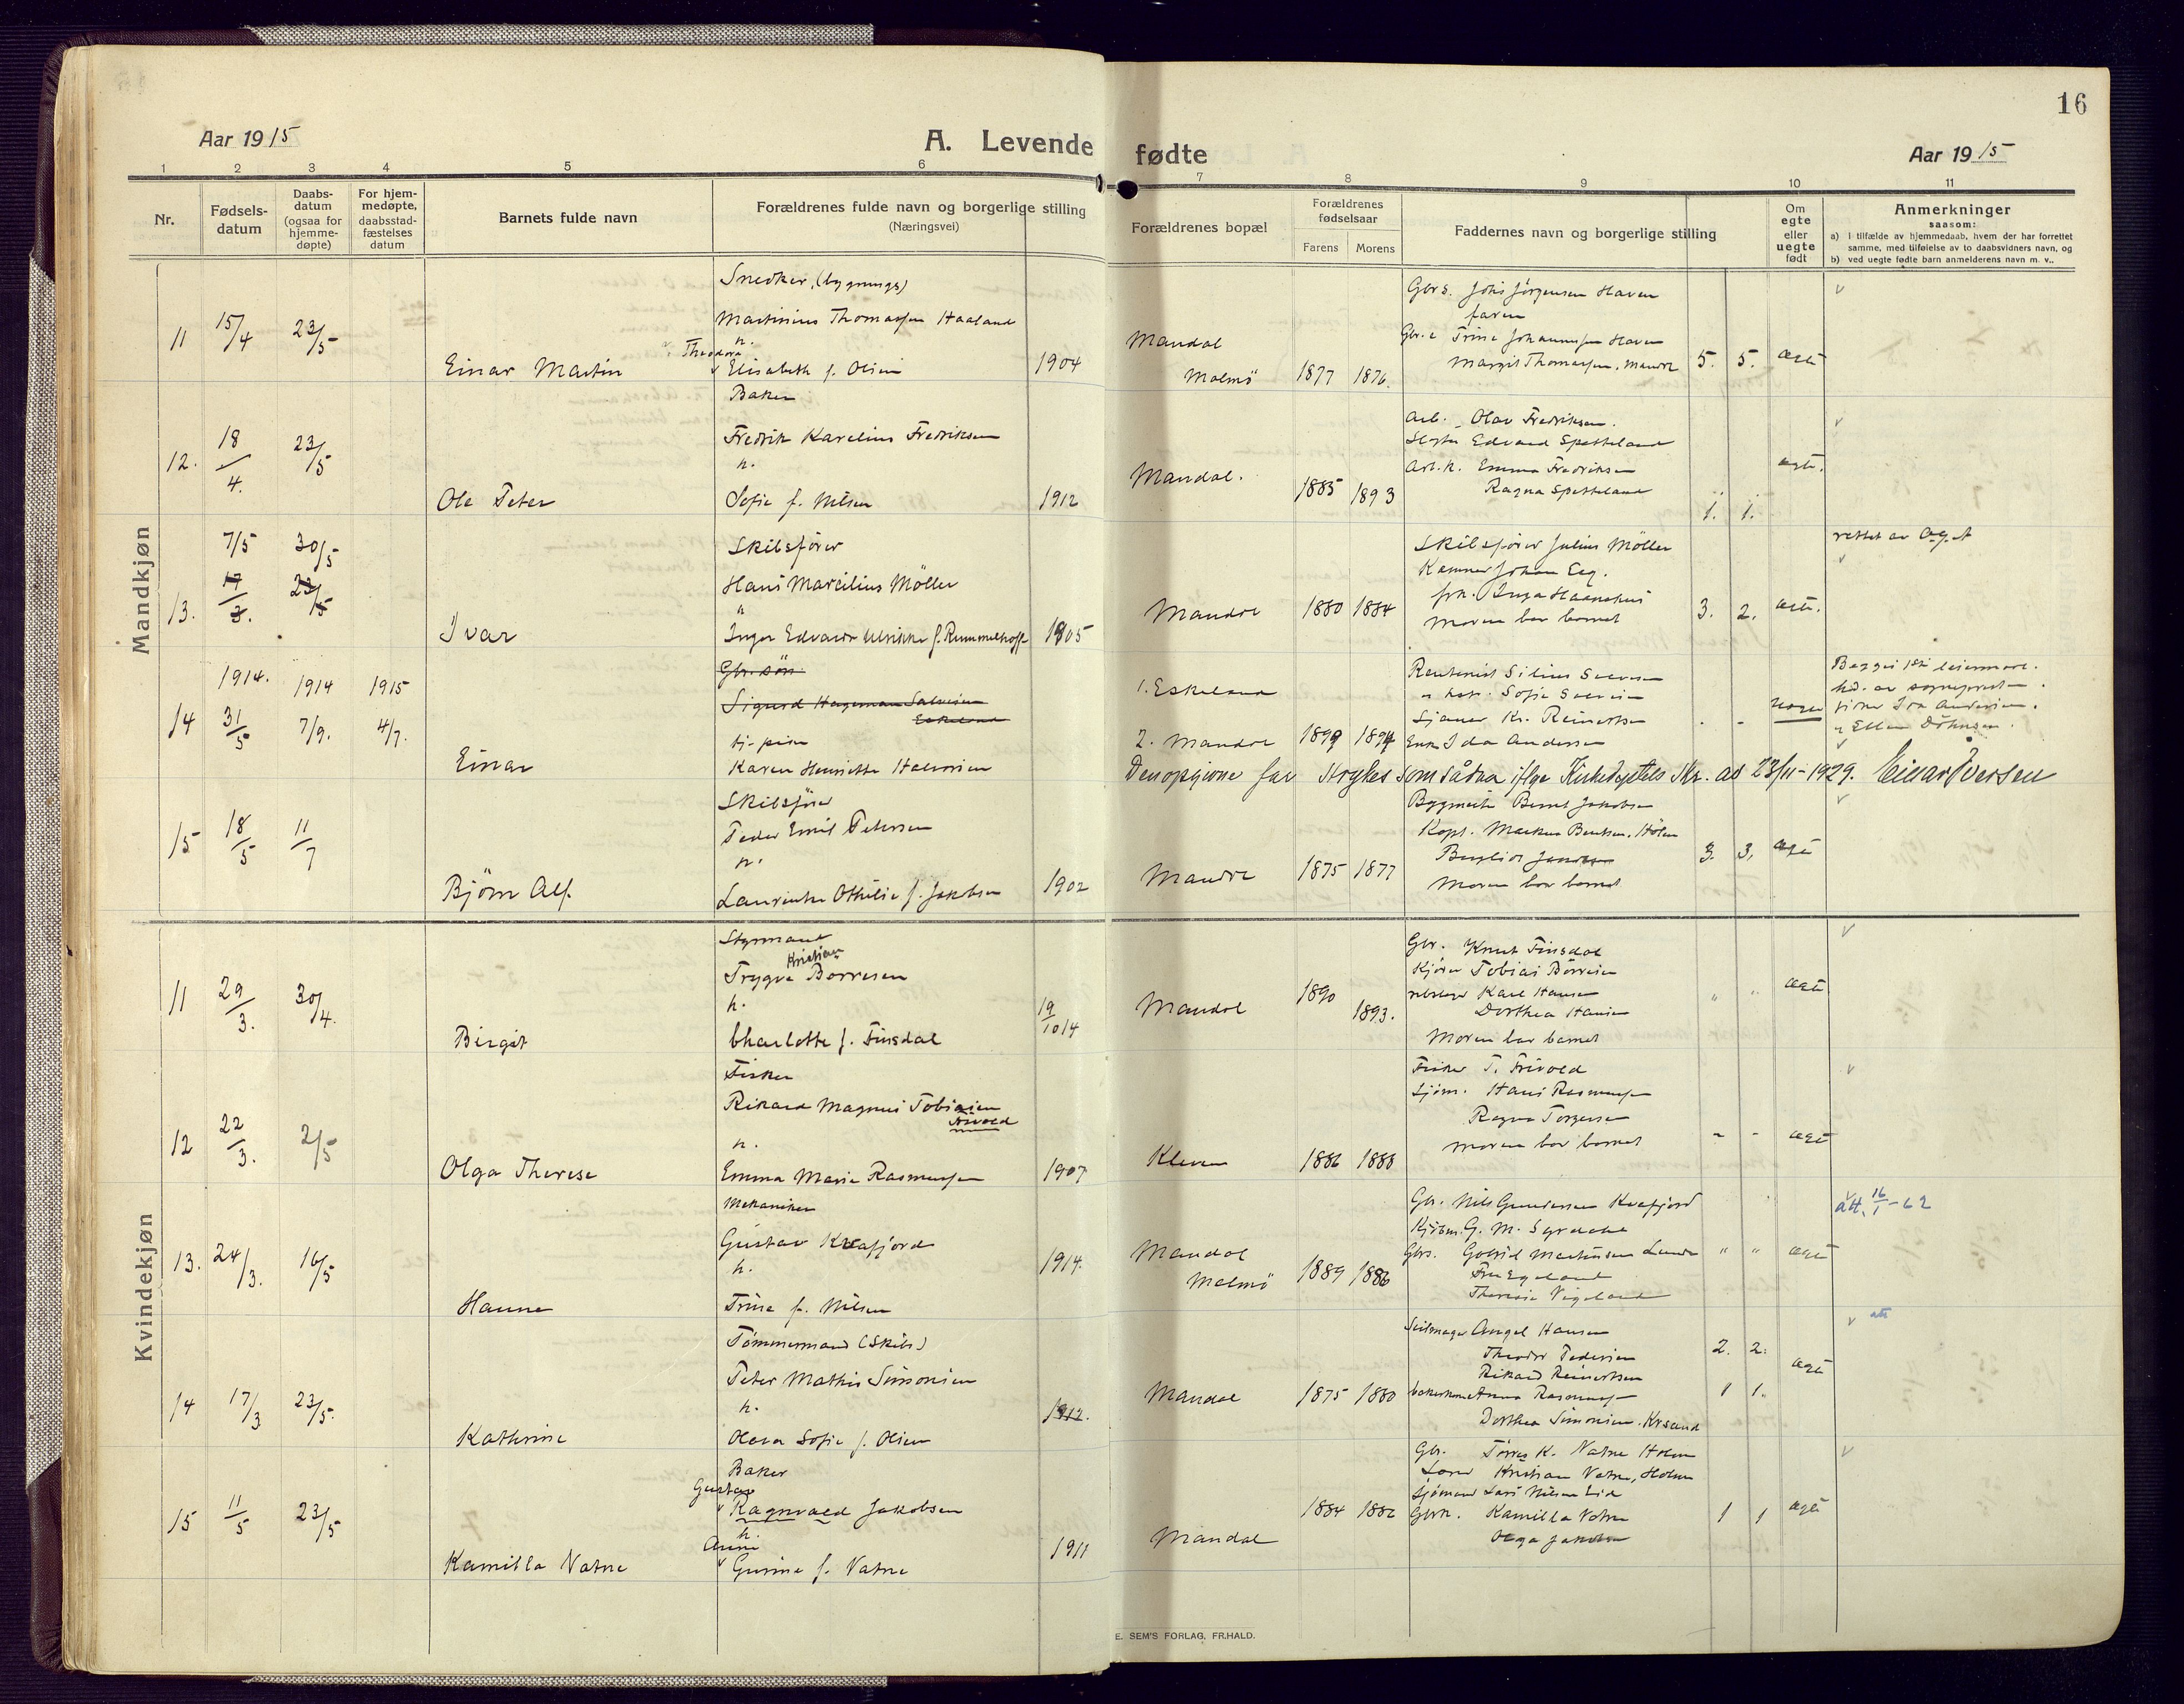 16
Aar 1915
A. Levende fødte
Aar 1915
1 2 3 4 5 6 7 8 9 10 11
Nr.
Fødsels-
datum
Daabs-
datum
(ogsaa for
hjemme-
døpte)
For hjem-
medøpte,
daabsstad-
fæstelses
datum
Barnets fulde navn
Forældrenes fulde navn og borgerlige stilling
(Næringsvei)
Forældrenes bopæl
Forældrenes
fødselsaar
Farens Morens
Faddernes navn og borgerlige stilling
Om
egte
eller
uegte
født
Anmerkninger
saasom:
a) I tilfælde av hjemmedaab, hvem der har forrettet
samme, med tilføielse av to daabsvidners navn, og
b) ved uegte fødte barn anmelderens navn m. v..
Mandkjøn
11 15/4 23/5
Einar Martin
Snedker, (bygnings)
Martinius Thomassen Haaland
h. Theodora
Elisabeth f. Olsen
1904
Mandal
Malmö
1877 1876.
Gbrs. Johs Jörgensen Haven
faren
Gbr.e Trine Johannessen Haven
Margit Thomassen, Mandal
5. 5. ægte
12. 18/4. 23/5
Ole Peter
Baker
Fredrik Karelius Fredriksen
h.
Sofie f. Nilsen
1912
Mandal.
1885 1893
Arb. Olav Fredriksen.
Edvard Spetteland
Arb.h. Emma Fredriksen
Ragna Spetteland
1. 1. ægte.
13. 7/5 30/5
17/3. 23/5
Ivar
Skibsfører
Hans Marcelius Möller
"
Inger Edvarda Ulrikke f. Rummelhoff
1905
Mandal
1880 1884
Skibsfører Julius Möller
Johan Eeg.
frk. Inga Haanshus
moren bar barnet
3. 2. ægte.
rettet av
14 1914. 31/5 1914 7/9. 1915 4/7.
Einar
Gbr. søn
Sigurd Hageman Salvesen
Eskeland
tj. pike
Karen Henriette Halvorsen
1. Eskeland
2. Mandal
1899 1894
Sofie
Sjømand Kr. Reinertsen
Enke Ida Andersen
- - uægte
Begges 1ste leiermaal.
hd. av sogneprest
Ida Andersen.
Ellen
Den opgivne far strykes som sådan iflge Kirkedeptets skr. av 23/11-1929. Einar Iversen
15 18/5 11/7
Bjørn Alf.
Skibsfører
Peder Emil Petersen
h.
Laurentze Othilie f. Jakobsen
1902
Mandal
1875 1877
Bygmester Bernt Jakobsen
Kapt. Markus Bentsen, Holum
Bergliot Jacobsen
Moren bar barnet
3. 3, ægte
Kvindekjøn
11 29/3. 30/4.
Birgit
Styrmand
Kristian
Trygve Børresen
h.
Charlotte f. Finsdal
19/10 14
Mandal
1890 1893.
Gbr. Knut Finsdal
Tobias Børresen
Karl Hansen
Dorthea Hansen
Moren bar barnet
" " ægte
12 22/3. 2/5
Olga Therese
Fisker
Rikard Magnus Tobiasen
Frivold
h.
Emma Marie Rasmussen
1907
Kleven
1886 1888
Fisker T. Frivold
Sjöm. Hans Rasmussen
Ragna Torgersen
moren bar barnet
- - ægte
13. 24/3. 16/5
Hanna
Mekaniker
Gustav Kvafjord
h.
Trine f. Nilsen
1914.
Mandal
Malmö
1889 1886
Gbr. Nils Gundersen Kvafjord
G. M. Syrdahl
Gbrs. Gotfrid Martinsen Lunde
Fru Egeland
Theresie Vigeland
" " ægte
att. 16/1-62
14 17/3 23/5.
Kathrine
Tömmermand (Skibs)
Peter Mathis Simonsen
h.
Olava Sofie f. Olsen
1912.
Mandal
1875 1880
Seilmager Angel Hansen
Theodor Pedersen
Rikard Reinertsen
Anna Rasmussen
Dorthea Simonsen. Krsand
2. 2.
1 1. ægte
att
15 11/5 23/5
Kamilla Vatne
Baker
Gustav
Ragnvald Jakobsen
h.
Anne
Gurine f. Vatne
1911
Mandal
1884 1886
Gbr. Tørres K. Vatne Holum
Kristian Vatne, Holum
Sjømand Lars Nilsen Eid
Gbrk. Kamilla Vatne
Olga Jakobsen
1 1 ægte
E. SEM'S FORLAG, FR.HALD.